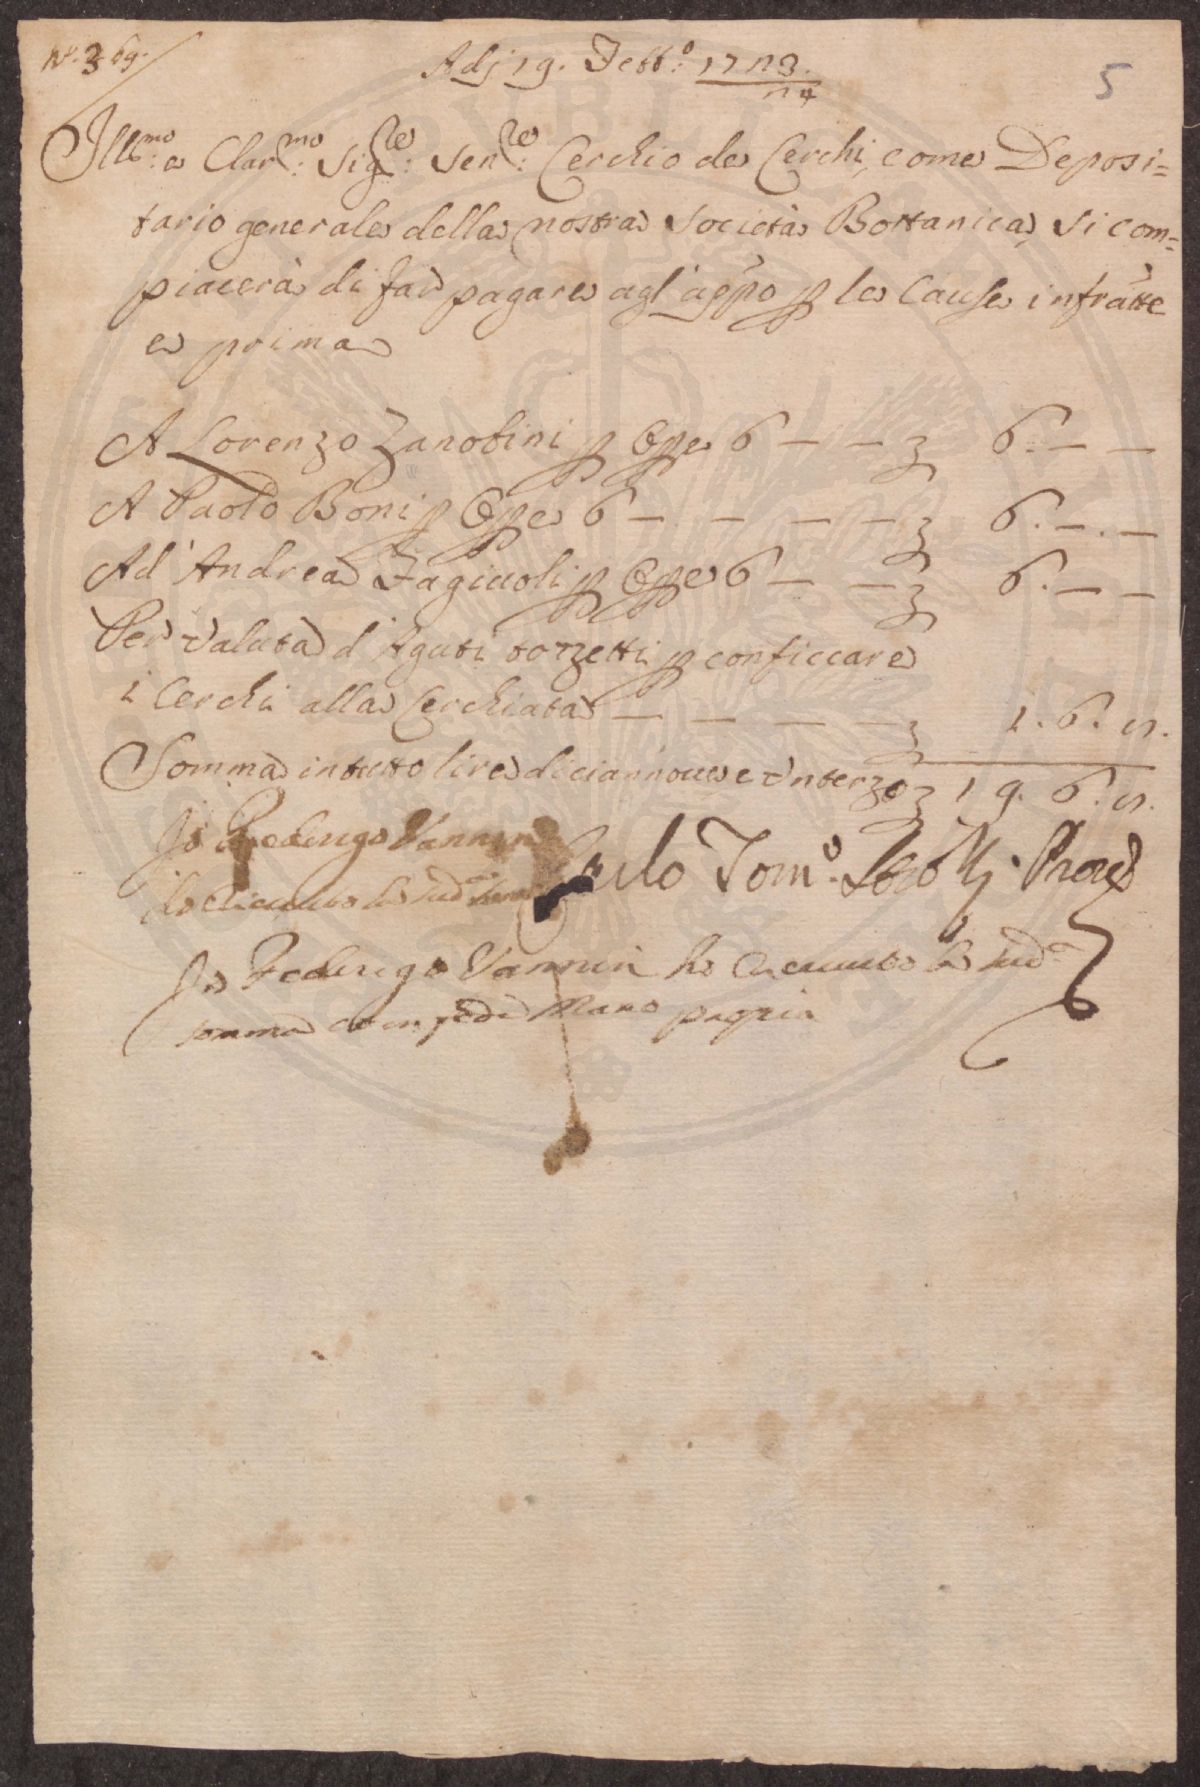 N.° 369.
Adj 19. Febb.° 1723.
24
5
Ill.mo e Clar.mo Sig.re Sen.re Cerchio de Cerchi, come Deposi=
tario generale della nostra Società Bottanica, si com=
piacerà di far pagare agl'app.o p le Cause infratte
e prima
A Lorenzo Zanobini p Ope 6 — — 6. — —
A Paolo Boni p Ope 6 — — — — 6. — . —
Ad' Andrea Fagiuoli p Ope 6 — — 6. — —
Per valuta d'Aguti tozzetti p conficcare
i Cerchi alla Cerchiata — — — — 1. 6. 8.
Somma in tutto lire diciannove e un terzo 19. 6. 8.
Io Federigo Vannini
Tom.° Prov.e
Io Federigo Vannini ho ricevuto la sud.a
somma et in fede mano propria